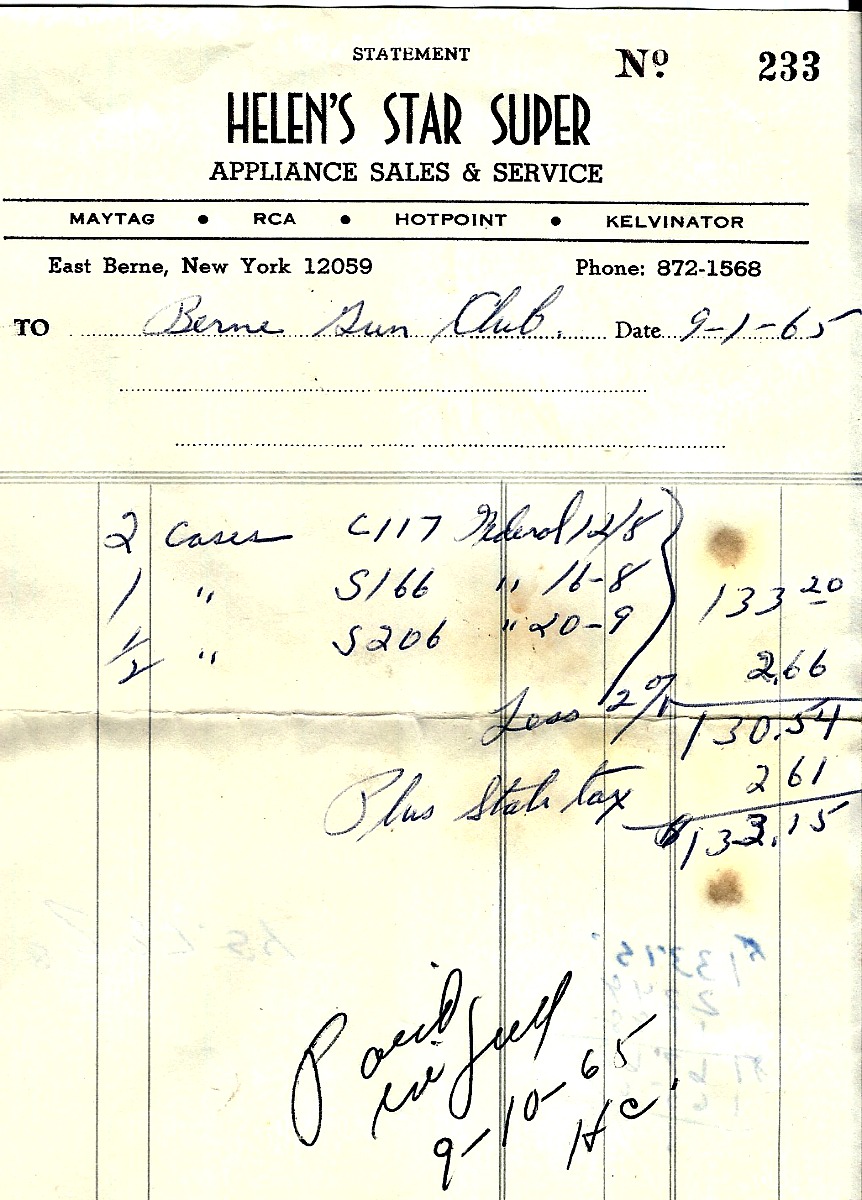 STATEMENT
Nº 233
HELEN'S STAR SUPER
APPLIANCE SALES & SERVICE
MAYTAG • RCA • HOTPOINT • KELVINATOR
East Berne, New York 12059 Phone: 872-1568
TO Berne Gun Club. Date 9-1-65
2 Cases C117 Federal 12/8
1 " S166 " 16-8 133 20
1/2 " S206 " 20-9
2.66
Less 2%
130.54
2 61
Plus State tax
$133.15
Paid
in full
9-10-65
HC